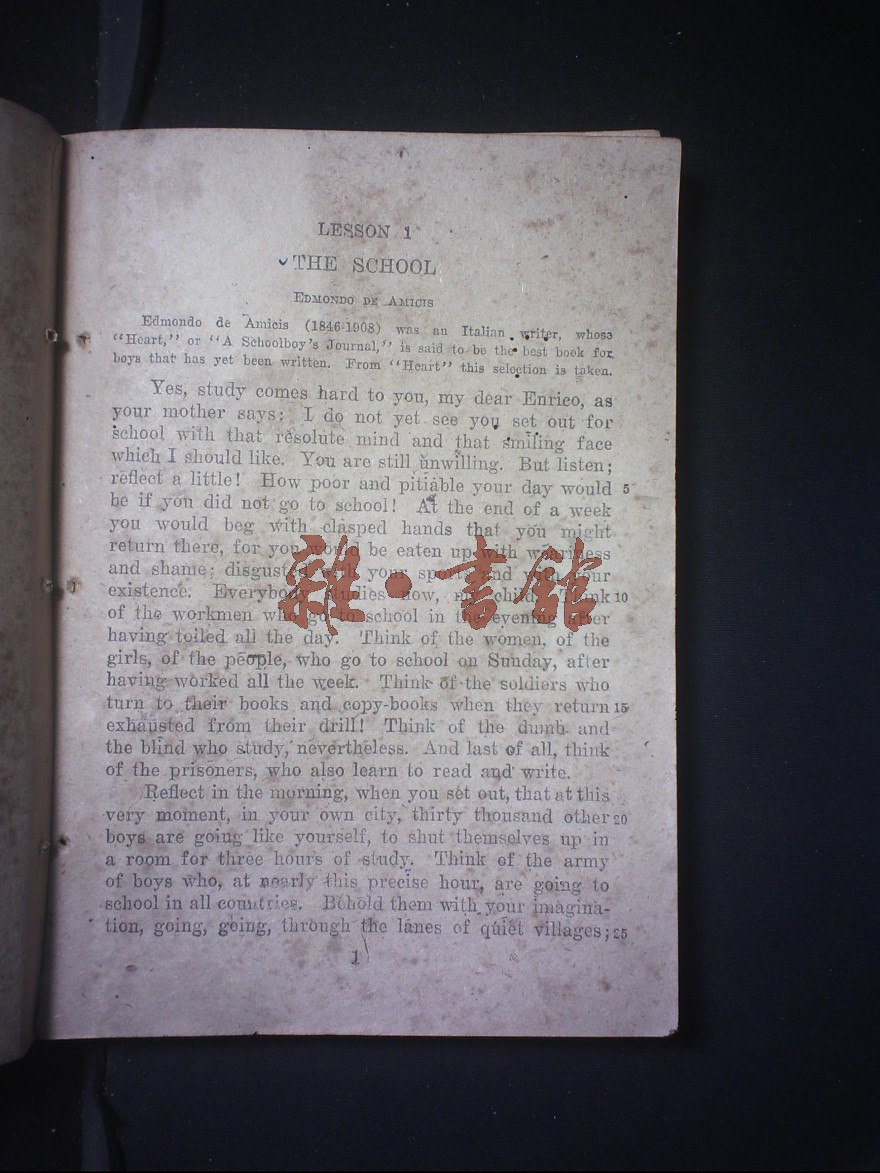 LESSON 1
THE SCHOOL
EDMONDO DE AMICIS
Edmondo de Amicis (1846-1908) was an Italian writer, whose
"Heart," or "A Schoolboy's Journal," is said to be the best book for
boys that has yet been written. From "Heart" this selection is taken.
Yes, study comes hard to you, my dear Enrico, as
your mother says: I do not yet see you set out for
school with that resolute mind and that smiling face
which I should like. You are still unwilling. But listen;
reflect a little! How poor and pitiable your day would 5
be if you did not go to school! At the end of a week
you would beg with clasped hands that you might
return there, for you would be eaten up with weariness
and shame; disgusted with your sports and with your
existence. Everybody studies now, my child. Think 10
of the workmen who go to school in the evening after
having toiled all the day. Think of the women, of the
girls, of the people, who go to school on Sunday, after
having worked all the week. Think of the soldiers who
turn to their books and copy-books when they return 15
exhausted from their drill! Think of the dumb and
the blind who study, nevertheless. And last of all, think
of the prisoners, who also learn to read and write.
Reflect in the morning, when you set out, that at this
very moment, in your own city, thirty thousand other 20
boys are going like yourself, to shut themselves up in
a room for three hours of study. Think of the army
of boys who, at nearly this precise hour, are going to
school in all countries. Behold them with your imagina-
tion, going, going, through the lanes of quiet villages; 25
1
雜·書館